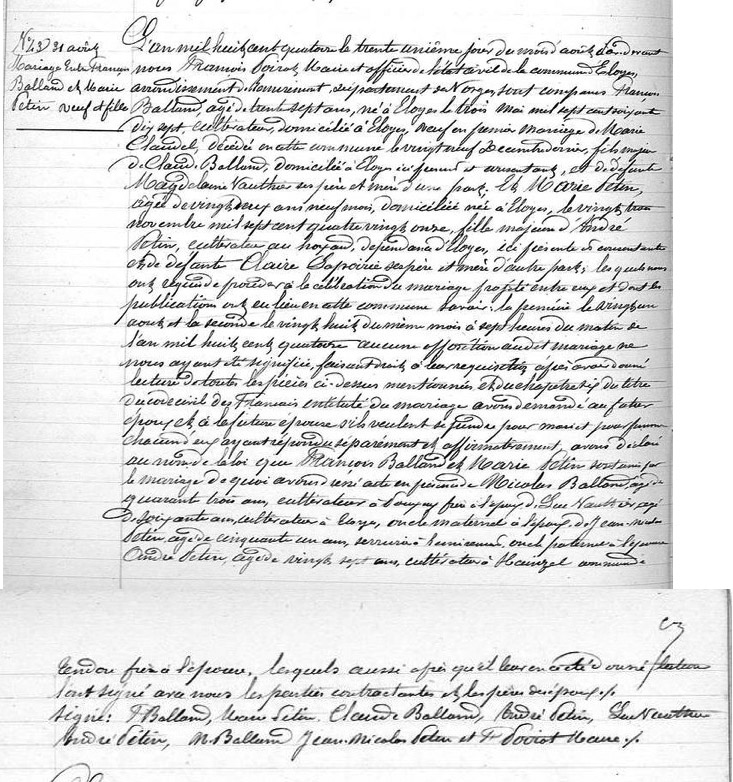 N. 23 31 août
Mariage Entre François
Balland et Marie
Petin veuf et fille
L'an mil huit cent quatorze le trente unième jour du mois d'août, pardevant
nous François Poirot, Maire et officier de l'état civil de la commune d'Eloyes,
arrondissement de Remiremont, département des Vosges, sont comparus François
Balland, agé de trent sept ans, né à Eloyes le trois Mai mil sept cent soixante
dix sept, cultivateur, domicilié à Eloyes, veuf en premier mariage de Marie
Claudel, décédée en cette commune le vingt neuf décembre dernier, fils majeur
de Claude Balland, domicilié à Eloyes ici présent et consentant, et de défunte
Magdelaine Vauthier ses père et mère d'une part, Et Marie Petin,
agée de vingt deux ans neuf mois, domiciliée née à Eloyes, le vingt trois
novembre mil sept cent quatre vingt onze, fille majeure d'André
Petin, cultivateur au hoyau, dépendance d'Eloyes, ici présente et consentante
et de défunte Claire Lapoirie ses père et mère d'autre part; les quels nous
ont requis de procéder à la célébration du mariage projeté entre eux et dont les
publications ont eu lieu en cette commune savoir: la première le vingt un
août et la seconde le vingt huit du même mois à sept heures du matin de
l'an mil huit cent quatorze aucune opposition audit mariage ne
nous ayant été signifiée, faisant droit à leur requisition, après avoir donné
lecture de toutes les pièces ci-dessus mentionnées et du chapitre six du titre
du code civil des Français intitulé du mariage avons demandé au futur
époux et à la future épouse s'ils veulent se prendre pour mari et pour femme
chacun d'eux ayant répondu séparément et affirmativement, avons déclaré
au nom de la loi que François Balland et Marie Petin sont unis par
le mariage de quoi avons dressé acte en présence de Nicolas Balland, agé de
quarant trois ans, cultivateur à frère à l'époux, de Luc Vauthier, agé
de soixante ans, cultivateur à oncle maternel à l'époux, de Jean-Nicolas
Petin, agé de cinquante un ans, serrurier à Remiremont, oncle paternel à l'épouse
André Petin, agé de vingt sept ans, cultivateur à commune de
Tendon frère à l'épouse, lesquels aussi après qu'il leur en a été donné lecture
l'ont signé avec nous les parties contractantes et les pères des époux ./.
Signé: F Balland, Marie Petin. Claude Balland, André Petin, Luc Vauthier
André Petin, N. Balland Jean-Nicolas Petin et Fr Poirot Maire ./.